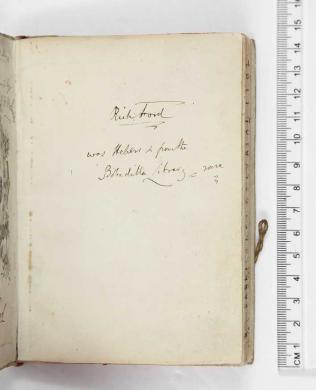 Rich Ford
was Heber's & from the
Bobadilla Library = rare
CM 1 2 3 4 5 6 7 8 9 10 11 12 13 14 15